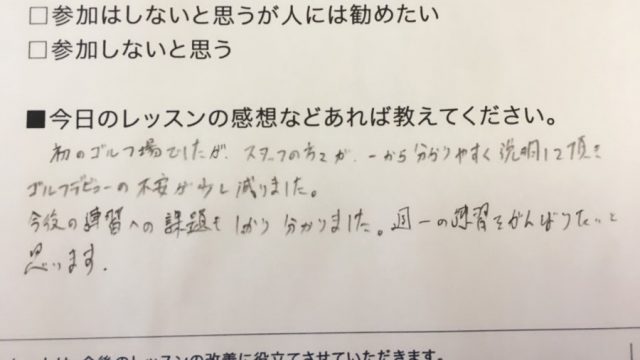 □参加はしないと思うが人には勧めたい
□参加しないと思う
■今日のレッスンの感想などあれば教えてください。
初のゴルフ場でしたが、スタッフの方々が、一から分かりやすく説明して頂き
ゴルフデビューの不安が少し減りました。
今後の練習への課題もしっかり分かりました。週一の練習をがんばりたいと
思います。
今後のレッスンの改善に役立てさせていただきます。